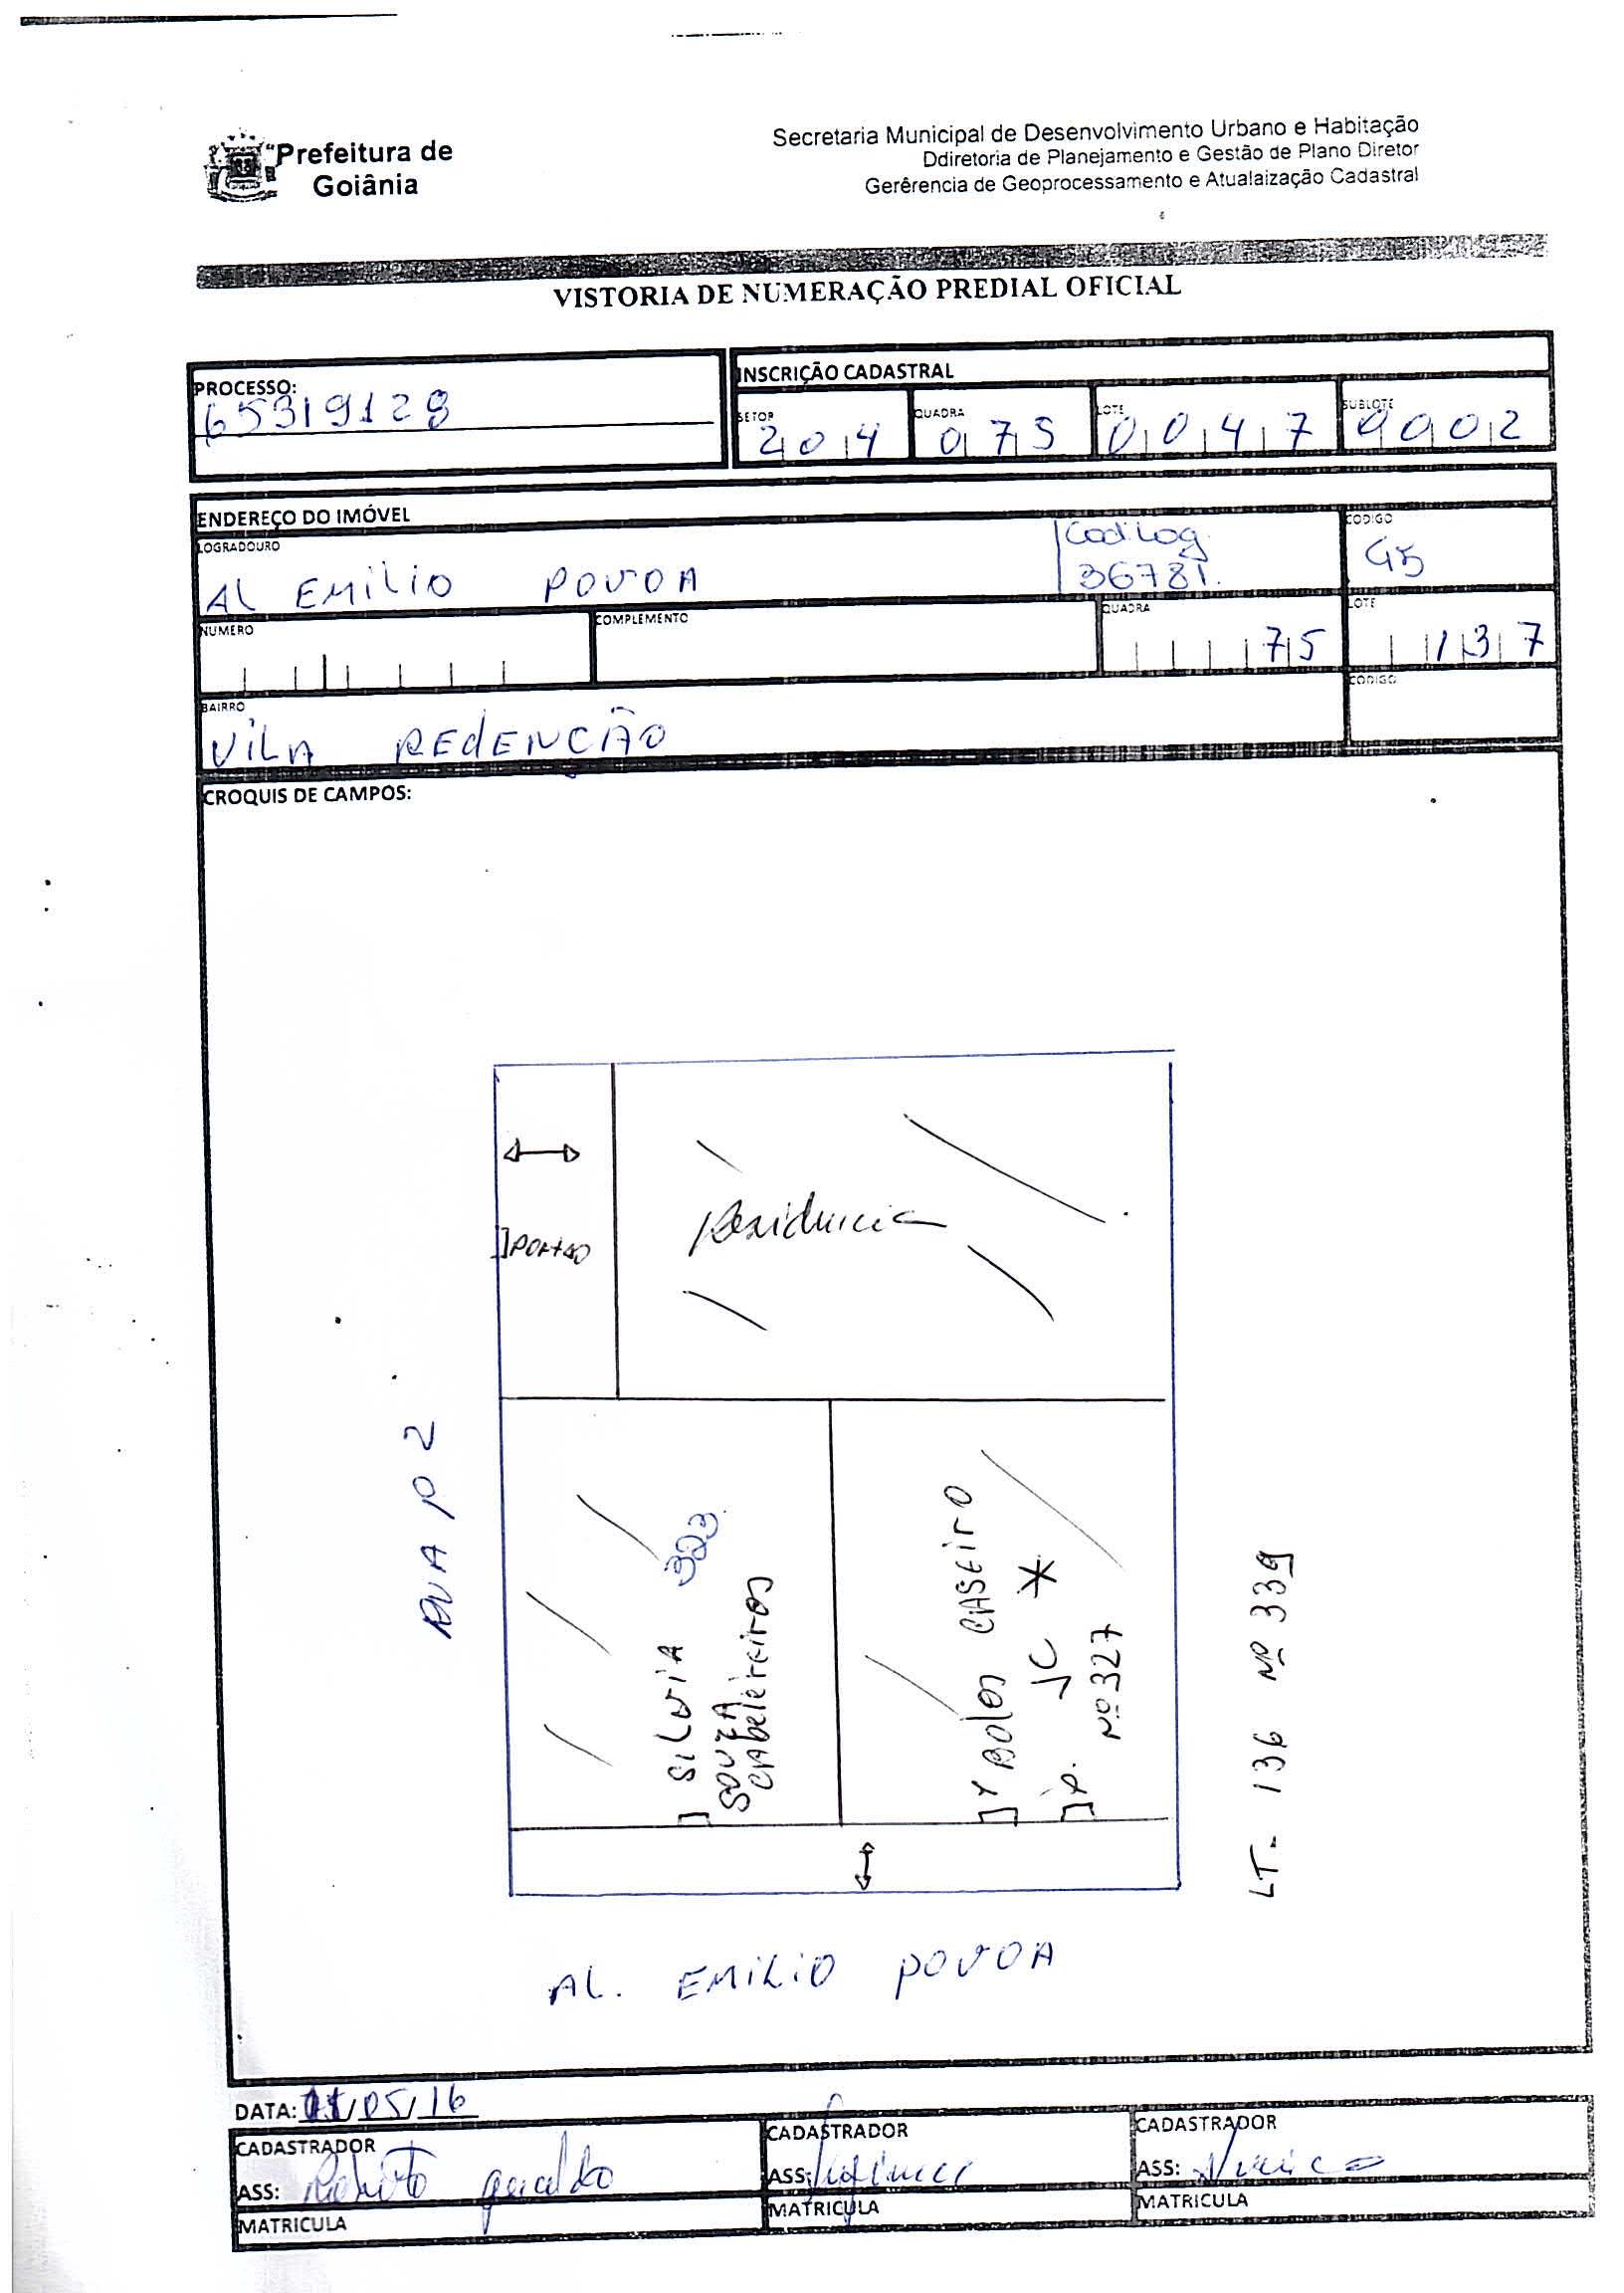 Prefeitura de
Goiânia
Secretaria Municipal de Desenvolvimento Urbano e Habitação
Ddiretoria de Planejamento e Gestão de Plano Diretor
Gerêrencia de Geoprocessamento e Atualaização Cadastral
VISTORIA DE NUMERAÇÃO PREDIAL OFICIAL
PROCESSO:
65319129
INSCRIÇÃO CADASTRAL
SETOR
204
QUADRA
075
LOTE
0047
SUBLOTE
0002
ENDEREÇO DO IMÓVEL
LOGRADOURO
AL EMILIO POVOA
Cod.Log.
36781.
CODIGO
45
NUMERO
COMPLEMENTO
QUADRA
75
LOTE
137
BAIRRO
VILA REDENÇÃO
CODIGO
CROQUIS DE CAMPOS:
PORTÃO
Residencia
RUA P 2
323
SILVIA
SOUZA
CABELEIREIROS
P BOLOS CASEIRO
P. JC *
Nº 327
LT- 136 Nº 339
AL. EMILIO POVOA
DATA: 11/05/16
CADASTRADOR
ASS: Roberto Geraldo
MATRICULA
CADASTRADOR
ASS:
MATRICULA
CADASTRADOR
ASS:
MATRICULA